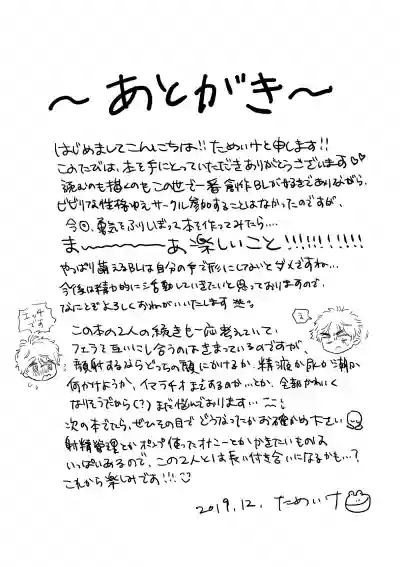 〜あとがき〜
はじめましてこんにちは!!ためいけと申します!!
このたびは、本を手にとっていただきありがとうございます♡♡
読むのも描くのもこの世で一番創作BLが好きでありながら、
ビビリな性格ゆえサークル参加することはなかったのですが、
今回、勇気をふりしぼって本を作ってみたら....
ま〜〜〜〜あ楽しいこと!!!!!!!!!
やっぱり萌えるBLは自分の手で形にしないとダメですね...
今後は精力的に活動していきたいと思っておりますので、
なにとぞよろしくおねがいいたします
エッチです
この本の2人の続きも一応考えていて、
フェラで互いにし合うのはきまっているのですが、
顔射するならどっちの顔にかけるか、精液か尿か潮か
何かけようか、イマラチオまでするのか...とか、全部かわいく
なりそうだから(?)まだ悩んでおります...
次の本でたら、ぜひその目でどうなったかお確かめ下さい
射精管理とかポンプ使ったオナニーとかかきたいものは
いっぱいあるので、この2人とは長い付き合いになるかも...?
これから楽しみです!!!
2019.12. ためいけ